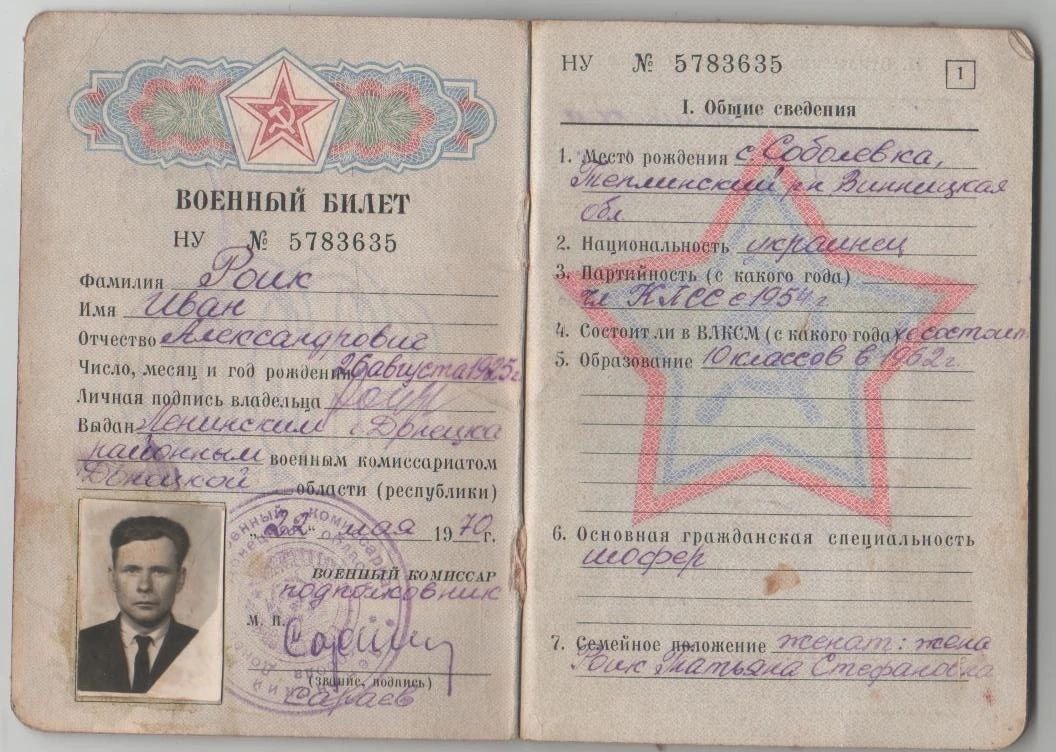 ВОЕННЫЙ БИЛЕТ
НУ № 5783635
Фамилия Роик
Имя Иван
Отчество Александрович
Число, месяц и год рождения 26 августа 1925г
Личная подпись владельца Роик
Выдан Ленинским г. Донецка
районным военным комиссариатом
Донецкой области (республики)
"22" мая 1970г.
ВОЕННЫЙ КОМИССАР
подполковник
М. П.
(звание, подпись)
Сараев
НУ № 5783635
1
I. Общие сведения
1. Место рождения с Соболевка,
рн Винницкая
обл
2. Национальность украинец
3. Партийность (с какого года)
чл КПСС с 1954 г
4. Состоит ли в ВЛКСМ (с какого года) не состоит
5. Образование 10 классов в 1962г.
6. Основная гражданская специальность
шофер
7. Семейное положение женат: жена
Роик Татьяна Стефановна